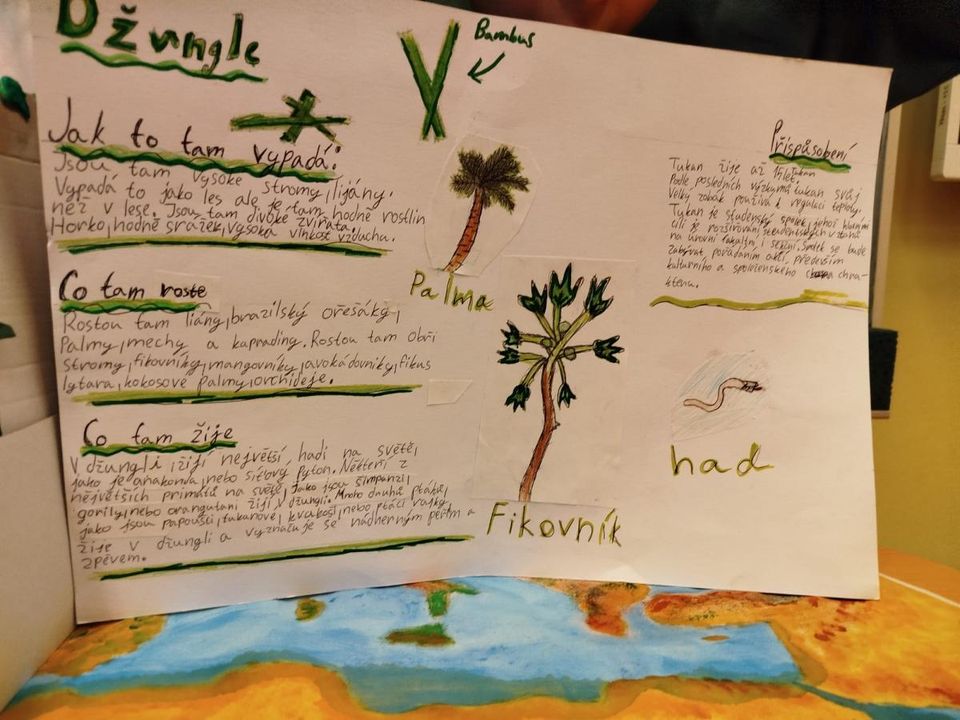 Džungle
Bambus
Jak to tam vypadá:
Jsou tam vysoké stromy, lijány.
Vypadá to jako les ale je tam hodně rostlin
než v lese. Jsou tam divoké zvířata.
Horko, hodně srážek, vysoká vlhkost vzduchu.
Co tam roste
Rostou tam liány, brazilský ořešáky,
Palmy, mechy a kaprading. Rostou tam obří
stromy, fikovníky, mangovníky, avokádovníky, fikus
lytara, kokosové palmy, orchideje.
Co tam žije
V džungli žijí největší hadi na světě,
jako je anakonda, nebo síťový pyton. Někteří z
největších primátů na světě, jako jsou šimpanzi,
gorily, nebo orangutani žijí v džungli. Mnoho druhů ptáků,
jako jsou papoušci, tukanové, kvakoši, nebo ptáci rajky
žije v džungli a vyznačuje se nádherným peřím a
zpěvem.
Palma
Fikovník
Přispůsobení
Tukan žije až let
Tukan
Podle posledních výzkumů tukan svůj
Velký zobák používá k regulaci teploty.
Tukan je studenský spolek, jehož hlavními
cíli je rozšiřování studentských vztahů
na úrovni fakultní, i sekční. Spolek se bude
zabývat pořádáním akcí, především
kulturního a společenského chra-
kteru.
had